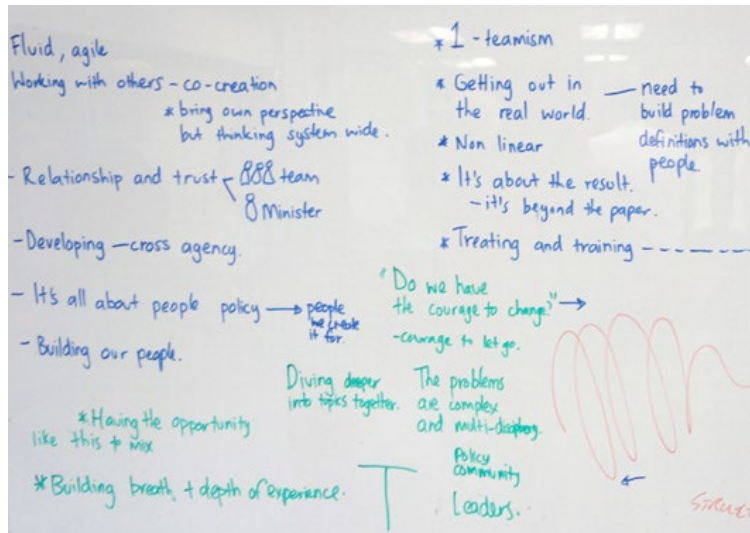 Fluid, agile
Working with others - co-creation
* bring own perspective
but thinking system wide.
- Relationship and trust - team
Minister
- Developing - cross agency.
- It's all about people policy → people
we create
it for.
- Building our people.
* Having the opportunity
like this to mix
* Building breath, + depth of experience.
* 1 - teamism
* Getting out in
the real world. — need to
build problem
definitions with
people.
* Non linear
* It's about the result.
- it's beyond the paper.
* Treating and training - - - - - - -
"Do we have
the courage to change?" →
- courage to let go.
Diving deeper
into topics together.
The problems
are complex
and
Policy
community
Leaders.